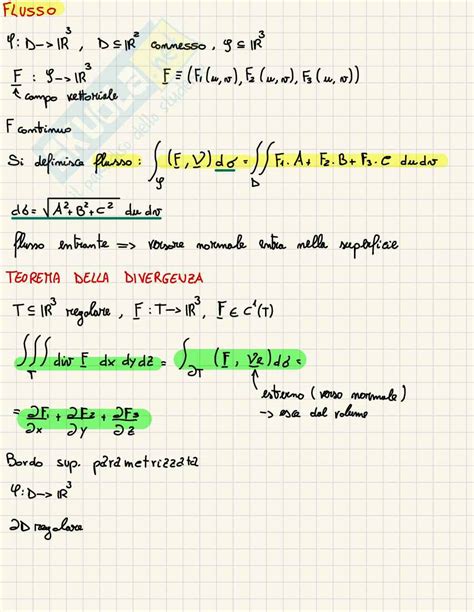 FLUSSO
φ: D → ℝ³ , D ⊆ ℝ² connesso , φ ⊆ ℝ³
F : φ → ℝ³ F ≡ (F₁(u,v), F₂(u,v), F₃(u,v))
campo vettoriale
F continuo
Si definisca flusso : ∫_φ (F, ν) dσ = ∬_D F₁·A + F₂·B + F₃·C du dv
dσ = √(A² + B² + C²) du dv
flusso entrante => versore normale entra nella superficie
TEOREMA DELLA DIVERGENZA
T ⊆ ℝ³ regolare , F : T → ℝ³ , F ∈ C¹(T)
∭_T div F dx dy dz = ∫_∂T (F, νe) dσ =
esterno (verso normale)
→ esce dal volume
= ∂F₁/∂x + ∂F₂/∂y + ∂F₃/∂z
Bordo sup. parametrizzata
φ: D → ℝ³
∂D regolare